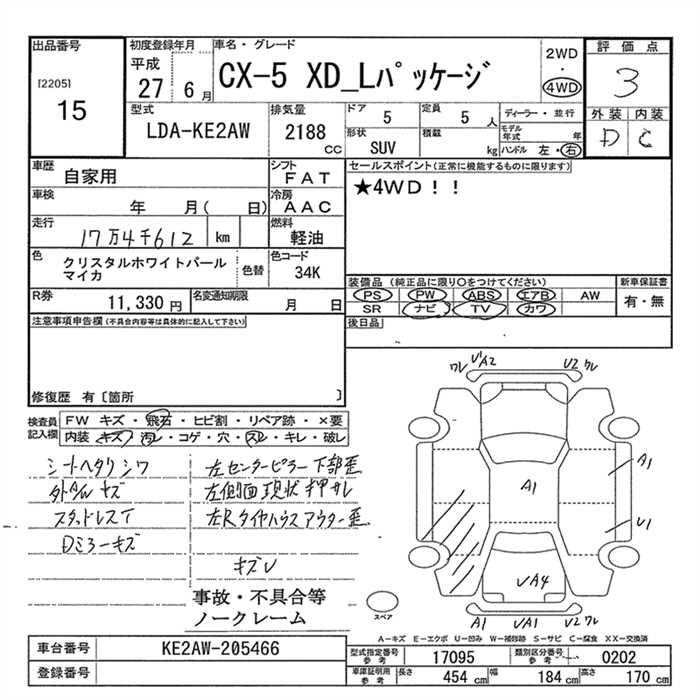 出品番号
[2205]
15
初度登録年月
平成
27 6月
車名・グレード
CX-5 XD_Lパッケージ
2WD
・
4WD
評価点
3
外装 内装
D C
型式
LDA-KE2AW
排気量
2188 cc
ドア
5
定員
5 人
形状
SUV
積載
kg
ディーラー・並行
モデル年式 年
ハンドル 左・右
車歴
自家用
シフト
FAT
車検
年 月( 日)
冷房
AAC
走行
17万4千612 km
燃料
軽油
色
クリスタルホワイトパール
マイカ
色替
色コード
34K
R券
11,330 円
名変通知期限
月 日
セールスポイント(正常に機能するものに限ります)
★4WD!!
装備品(純正品に限り○をつけてください)
PS PW ABS エアB AW
SR ナビ TV カワ
新車保証書
有・無
後日品
注意事項申告欄(不具合内容等は具体的に記入して下さい)
修復歴 有〔箇所 〕
検査員
記入欄
FW キズ・飛石・ヒビ割・リペア跡・×要
内装 キズ・汚レ・コゲ・穴・スレ・キレ・破レ
シートヘタリ シワ
外AW キズ
スタッドレスT
Dミラーキズ
左センターピラー下部歪
左側面現状 押サレ
左Rタイヤハウスアウター歪
キズU
事故・不具合等
ノークレーム
ワレ U'A2 U2 ワレ
A1
A1
U1
UA4
A1 UA1 U2 ワレ
スペア
A-キズ E-エクボ U-凹み W-補修跡 S-サビ C-腐食 XX-交換済
車台番号
KE2AW-205466
登録番号
型式指定番号
参考
17095
類別区分番号
参考
0202
車庫証明用
参考
長さ 454 cm 幅 184 cm 高さ 170 cm